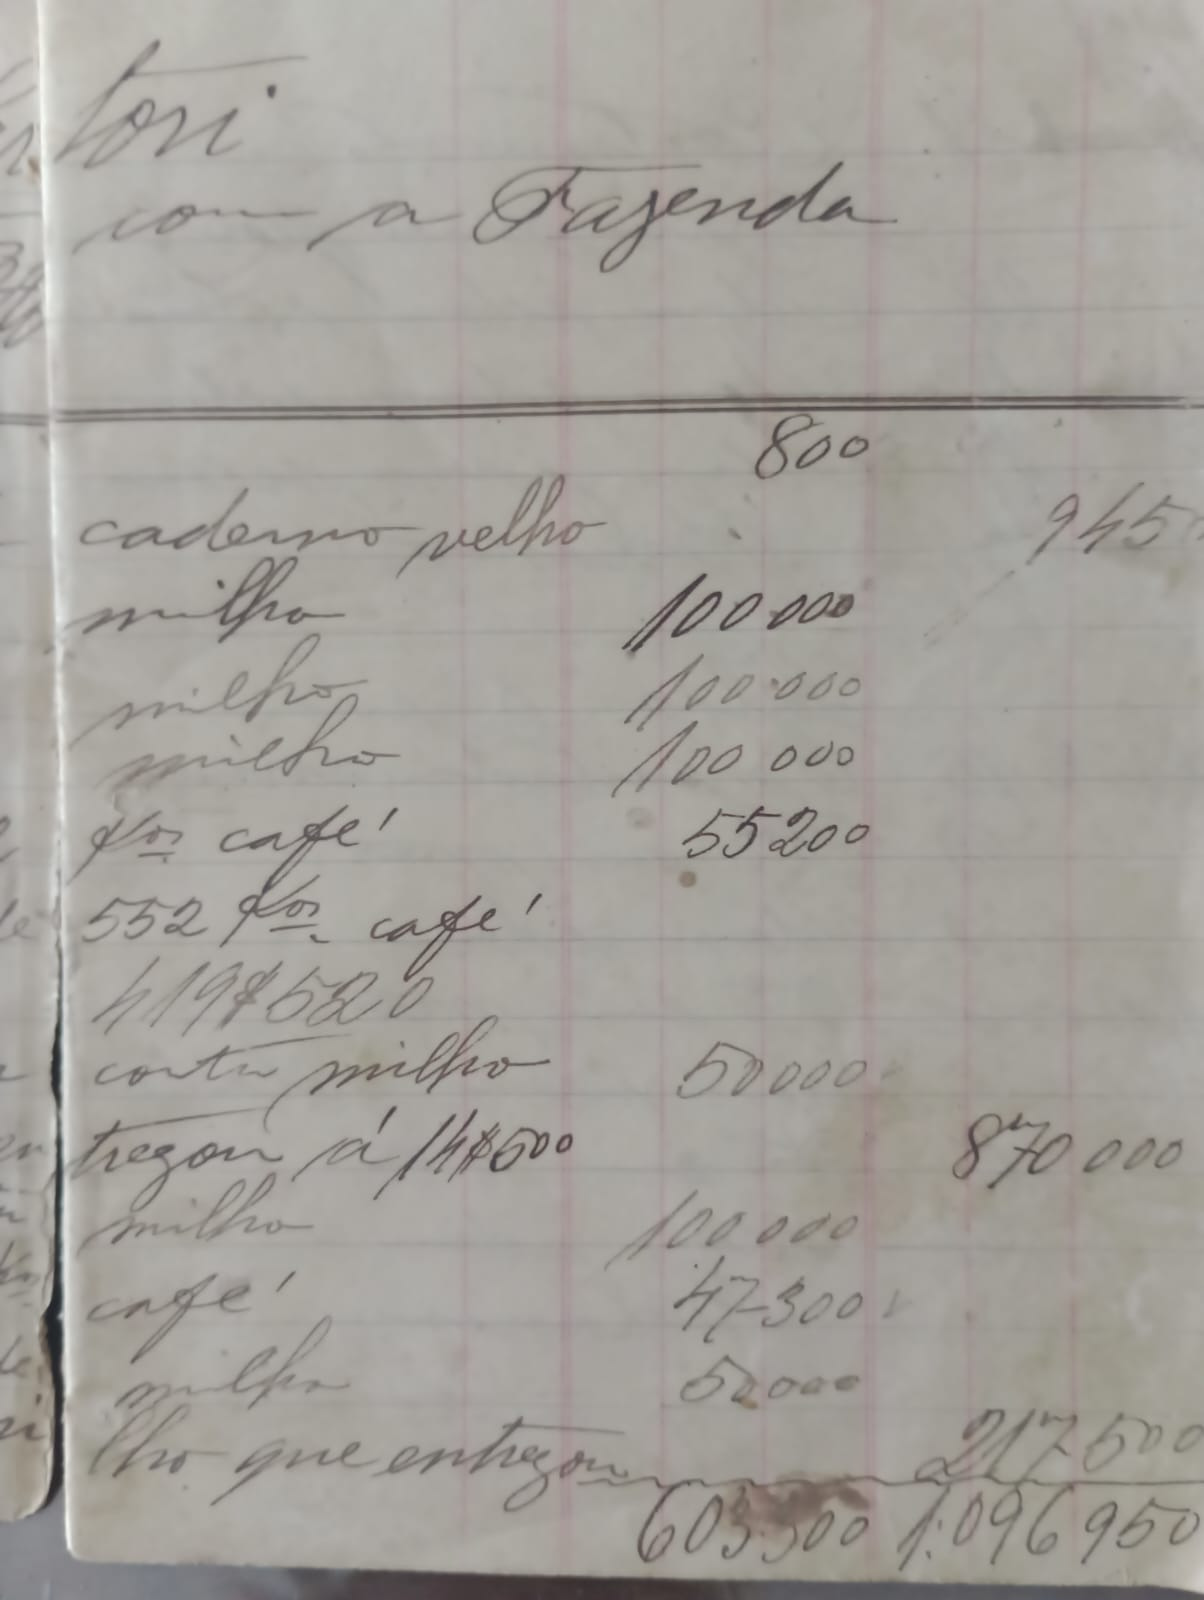 tori
com a Fazenda
800
caderno velho 945
milho 100 000
milho 100 000
milho 100 000
Kos café 55200
552 Kos. café
419$520
conta milho 50000
tregou á 14$500 870 000
milho 100 000
café 47300
milho 50000
lho que entregou 217 500
603.300 1:096 950